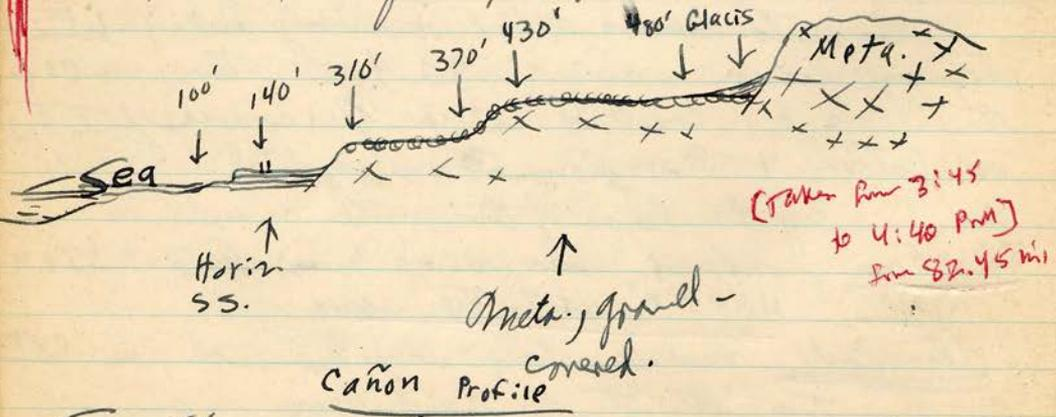 100' 140' 310' 370' 430' 480' Glacis
Meta.
Sea
Horiz.
SS.
Meta., gravel-
covered.
[Taken from 3:45
to 4:40 PM]
from 82.45 mi
Cañon Profile